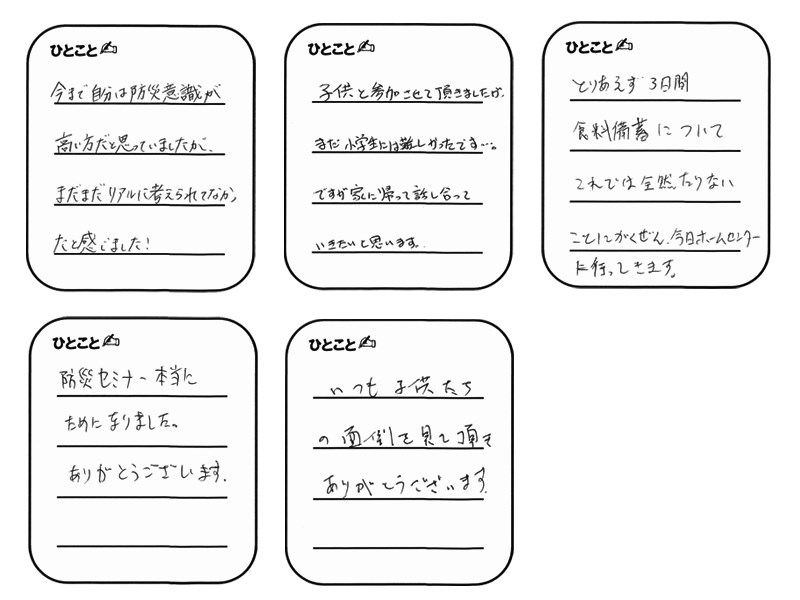 ひとこと✍
今まで自分は防災意識が
高い方だと思っていましたが、
まだまだリアルに考えられてなかっ
たと感じました!
ひとこと✍
子供と参加させて頂きましたが、
まだ小学生には難しかったです…。
ですが家に帰って話し合って
いきたいと思います。
ひとこと✍
とりあえず3日間
食料備蓄について
これでは全然たりない
ことにがくぜん、今日ホームセンター
に行ってきます。
ひとこと✍
防災セミナー本当に
ためになりました。
ありがとうございます.
ひとこと✍
いつも子供たち
の面倒を見て頂き
ありがとうございます.